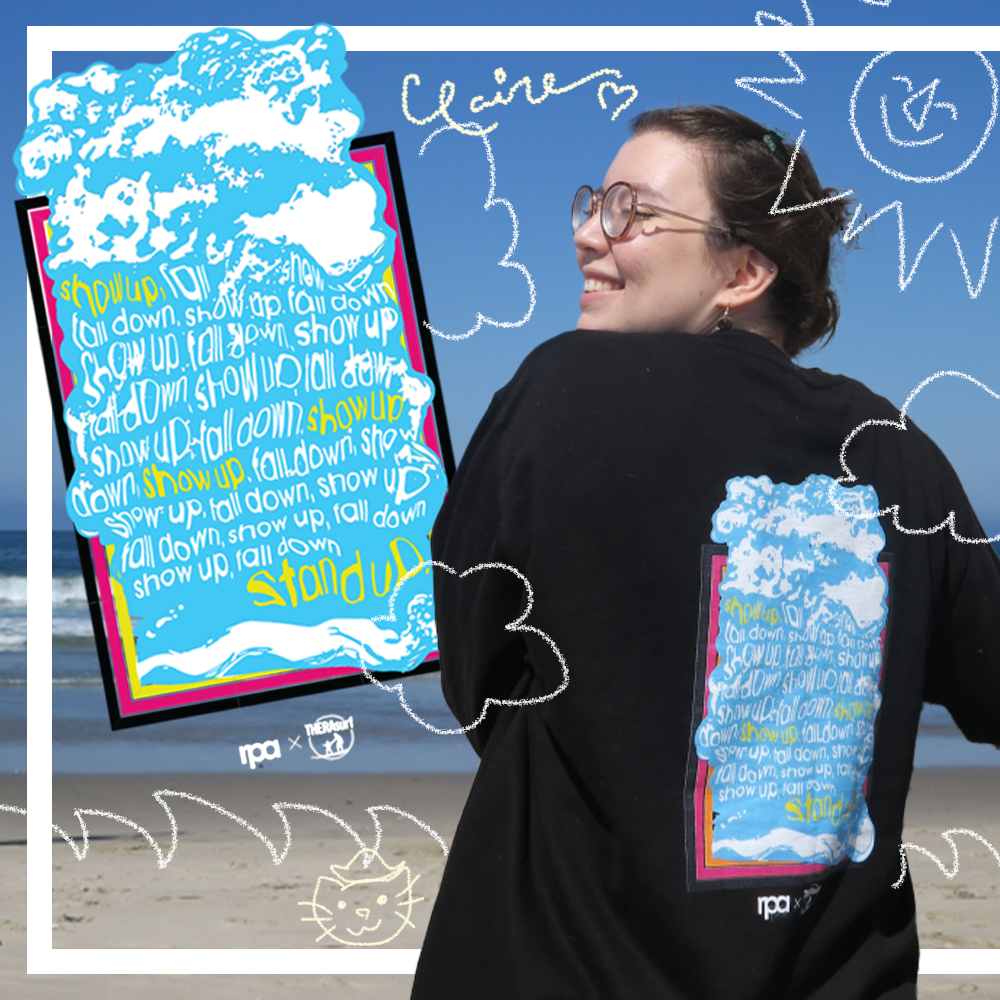 Claire
show up, fall show
fall down, show up, fall down
show up, fall down, show up
fall down, show up, fall down
show up, fall down, show up
show up, fall down, show
down, show up, fall down, show up
show up, fall down, show up
fall down, show up, fall down
show up, fall down
stand up.
rpa x THERAsurf
show up, fall
fall down, show up, fall down
show up, fall down, show up
fall down, show up, fall down
show up, fall down, show up
down, show up, fall down, show
show up, fall down, show
fall down, show up, fall
show up, fall down,
stand
rpa x